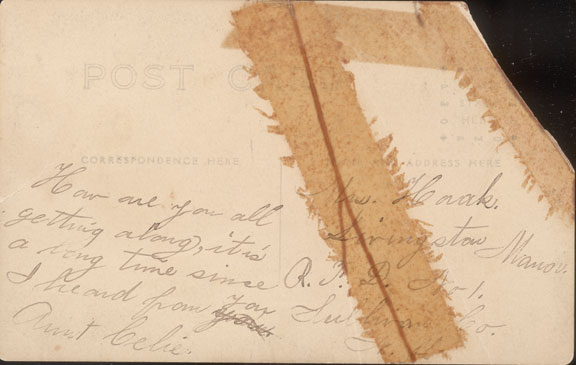 POST
CORRESPONDENCE HERE
ADDRESS HERE
How are you all
getting along, it's
a long time since
I heard from you
Aunt Celie.
Mrs. Horak.
Livingston Manor.
R. F. D. No 1.
Sullivan Co.